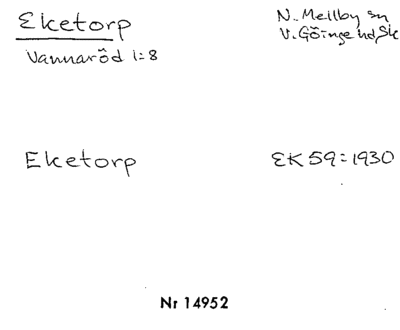 Eketorp
Vannaröd 1:8
N. Mellby sn
V. Göinge hd, Sk
Eketorp
EK 59=1930
Nr 14952